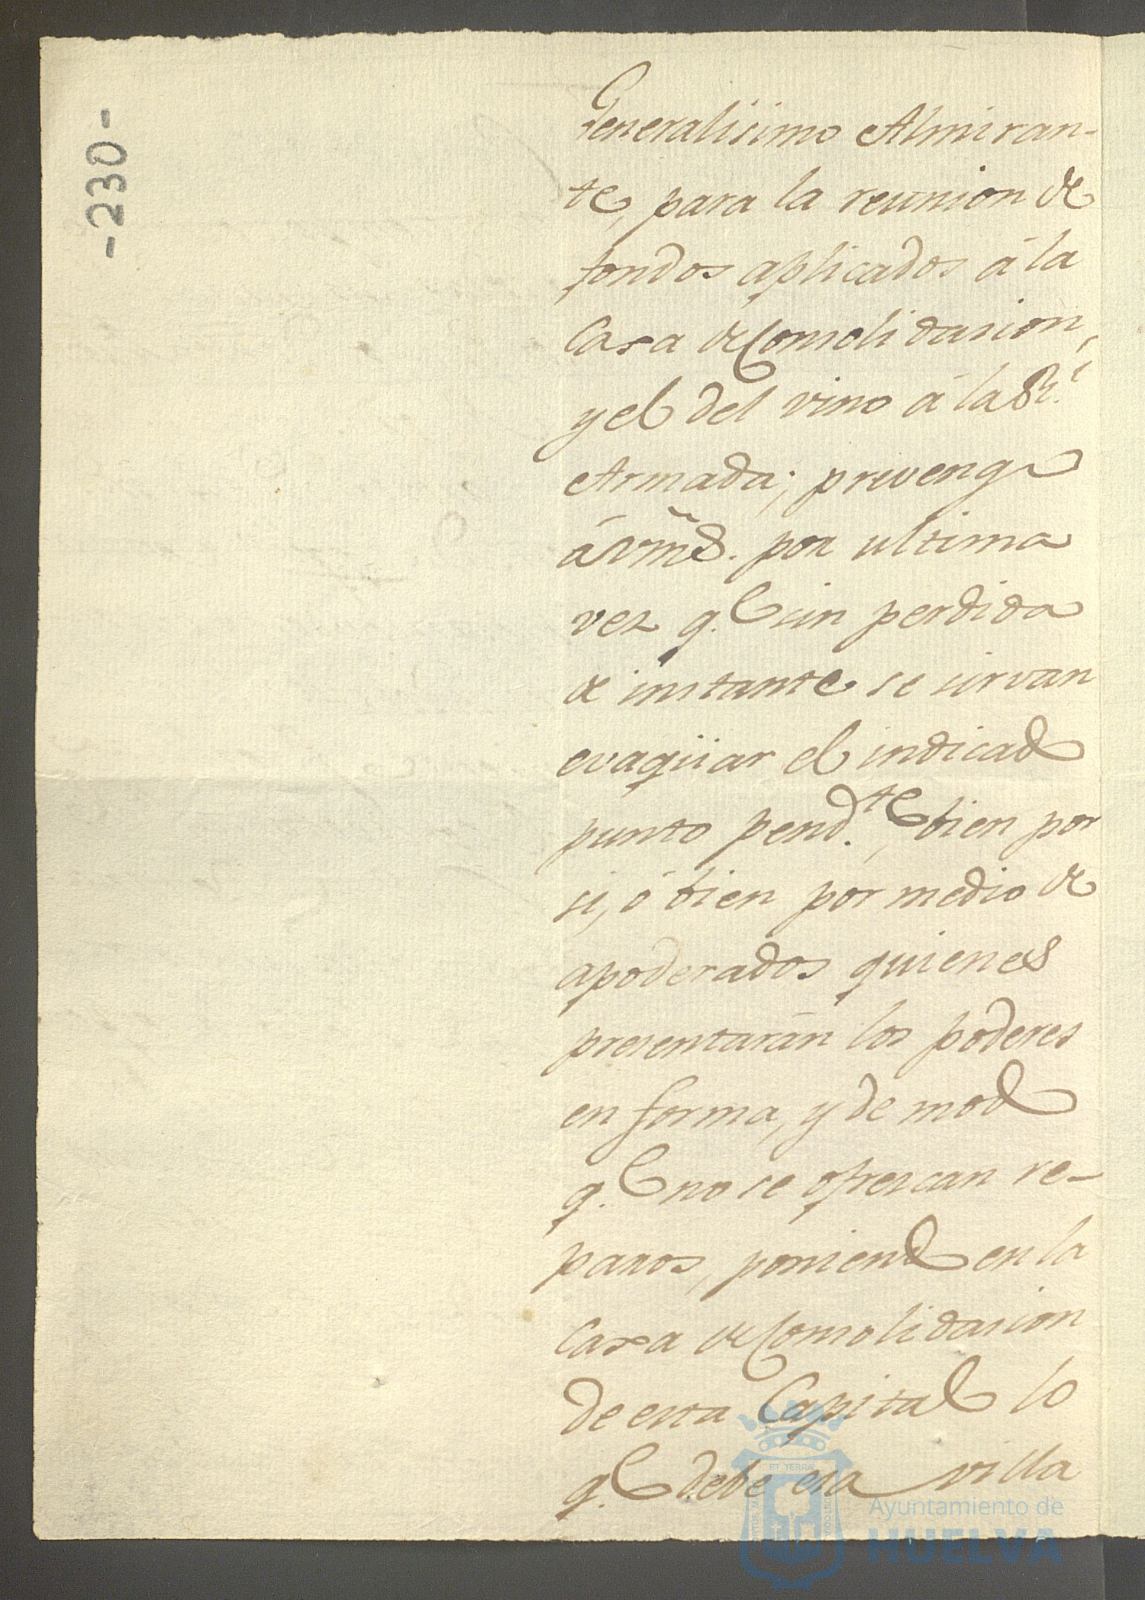 -230-
Generalisimo Almiran-
te, para la reunion de
fondos aplicados á la
Caxa de Consolidasion,
y el del vino á la Rl.
Armada; prevengo
á Vmds. por ultima
vez q.e sin perdida
de instante se sirvan
evaqüar el indicado
punto pend.te, bien por
si, ó bien por medio de
apoderados quienes
presentarán los poderes
en forma, y de modo
q.e no se ofrescan re-
paros, poniendo en la
Caxa de Consolidasion
de esta Capital lo
q.e debe esa villa
Ayuntamiento de
HUELVA